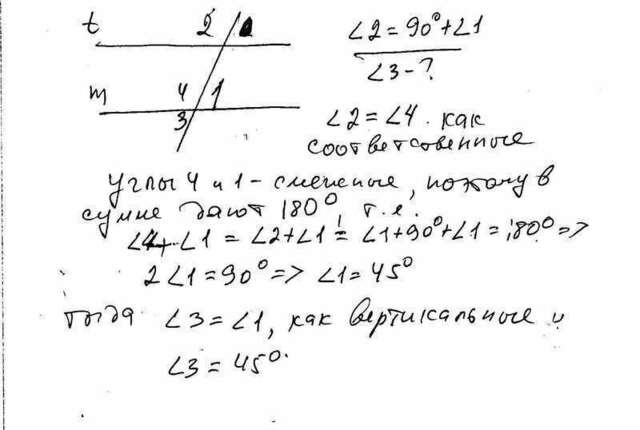 t 2
∠2 = 90° + ∠1
∠3 - ?
m 4 1
3
∠2 = ∠4. как
соответсвенные
Углы 4 и 1 - смежные, поэтому в
сумме дают 180° т.е.
∠4 + ∠1 = ∠2 + ∠1 = ∠1 + 90° + ∠1 = 180° =>
2∠1 = 90° => ∠1 = 45°
тогда ∠3 = ∠1, как вертикальные и
∠3 = 45°.